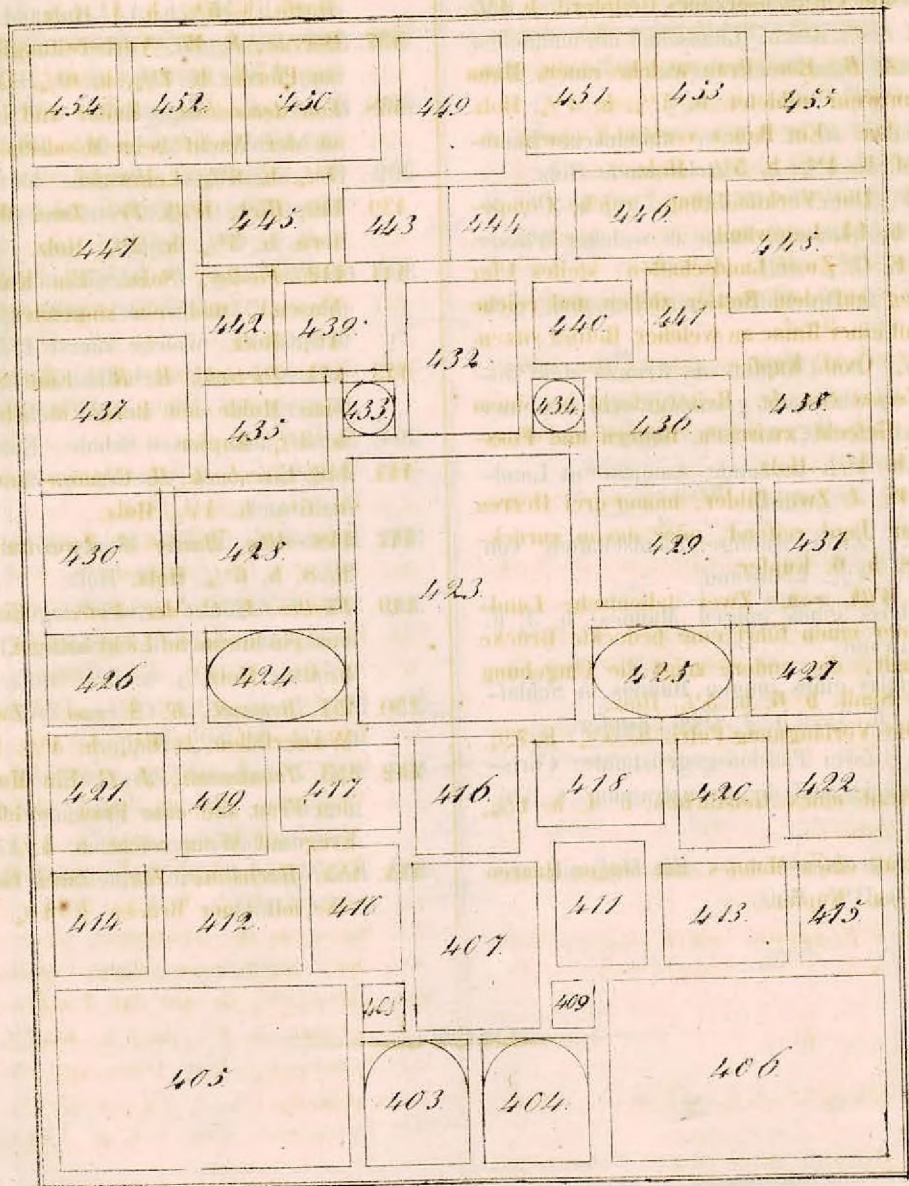 454. 452. 450. 449. 451. 453 455.
447. 445. 443 444 446. 448.
442. 439. 432. 440 441
437. 435 433 434 436. 438.
430. 428 423. 429 431
426. 424. 425 427.
421. 419. 417. 416. 418. 420 422.
414. 412. 410. 407. 411 413. 415
408 409
405 403. 404. 406.